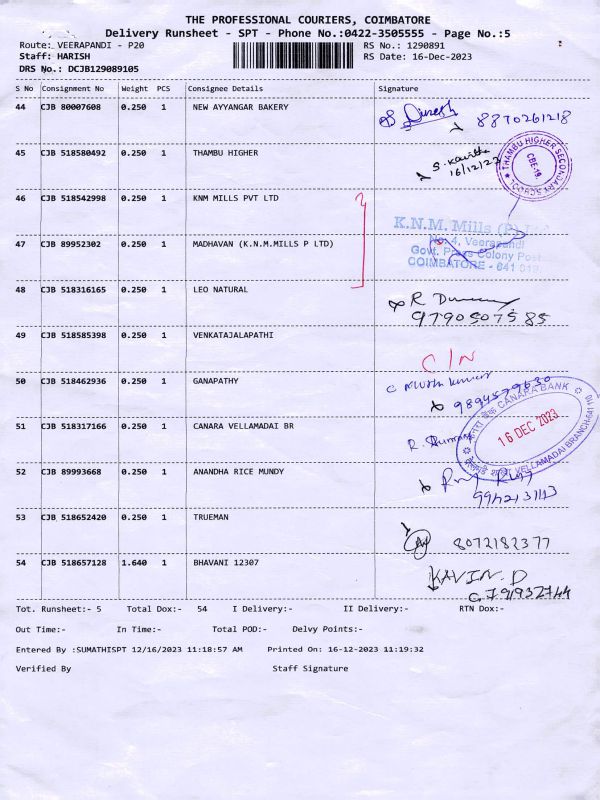 THE PROFESSIONAL COURIERS, COIMBATORE
Delivery Runsheet - SPT - Phone No.:0422-3505555 - Page No.:5
Route: VEERAPANDI - P20 RS No.: 1290891
Staff: HARISH RS Date: 16-Dec-2023
DRS No.: DCJB129089105
S No Consignment No Weight PCS Consignee Details Signature
44 CJB 80007608 0.250 1 NEW AYYANGAR BAKERY
Dinesh 8870261218
45 CJB 518580492 0.250 1 THAMBU HIGHER
S. Kavitha
16/12/23
THAMBU HIGHER SECONDARY SCHOOL
CBE-19
46 CJB 518542998 0.250 1 KNM MILLS PVT LTD
K.N.M. Mills (P) Ltd
No. 4, Veerapandi
47 CJB 89952302 0.250 1 MADHAVAN (K.N.M.MILLS P LTD)
Govt. Press Colony Post
COIMBATORE - 641 019.
48 CJB 518316165 0.250 1 LEO NATURAL
R
9790507585
49 CJB 518585398 0.250 1 VENKATAJALAPATHI
C/N
50 CJB 518462936 0.250 1 GANAPATHY
C Muthu kumar
9894579630
51 CJB 518317166 0.250 1 CANARA VELLAMADAI BR
R.
CANARA BANK
16 DEC 2023
VELLAMADAI BRANCH-641 110
52 CJB 89993668 0.250 1 ANANDHA RICE MUNDY
53 CJB 518652420 0.250 1 TRUEMAN
8072182377
54 CJB 518657128 1.640 1 BHAVANI 12307
KAVIN. D
Tot. Runsheet:- 5 Total Dox:- 54 I Delivery:- II Delivery:- RTN Dox:-
Out Time:- In Time:- Total POD:- Delvy Points:-
Entered By :SUMATHISPT 12/16/2023 11:18:57 AM Printed On: 16-12-2023 11:19:32
Verified By Staff Signature